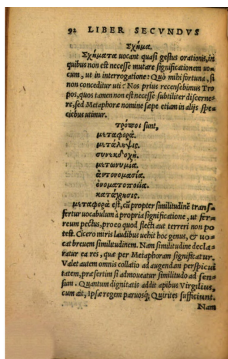 92 LIBER SECVNDVS
Σχήμα.
Σχήματα vocant quasi gestus orationis, in
quibus non est necesse mutare significationem vo
cum, ut in interrogatione: Quò mihi fortuna, si
non conceditur uti: Nos prius recensebimus Tro
pos, quos tamen non est necesse subtiliter discerne
re, sed Metaphoræ nomine sæpe etiam in alijs spe
ciebus utimur.
τρόποι sunt,
μεταφορά.
μετάληψις.
συνεκδοχή.
μετωνυμία.
ἀντονομασία.
ὀνοματοποιΐα.
κατάχρησις.
μεταφορὰ est, cù propter similitudinẽ trans
fertur uocabulum à propria significatione, ut fer
reum pectus, pro eo quod flecti aut terreri non po
test. Cicero miris laudibus uehit hoc genus, & uo
cat breuem similitudinem. Nam similitudine decla
ratur ea res, quæ per Metaphoram significatur.
Valet autem omnis collatio ad augendam perspicui
tatem, præsertim si admoueatur similitudo ad sen
sum. Quantum dignitatis addit apibus Virgilius,
cum ait, ipsæ regem paruosq; Quirites sufficiunt.
Nam